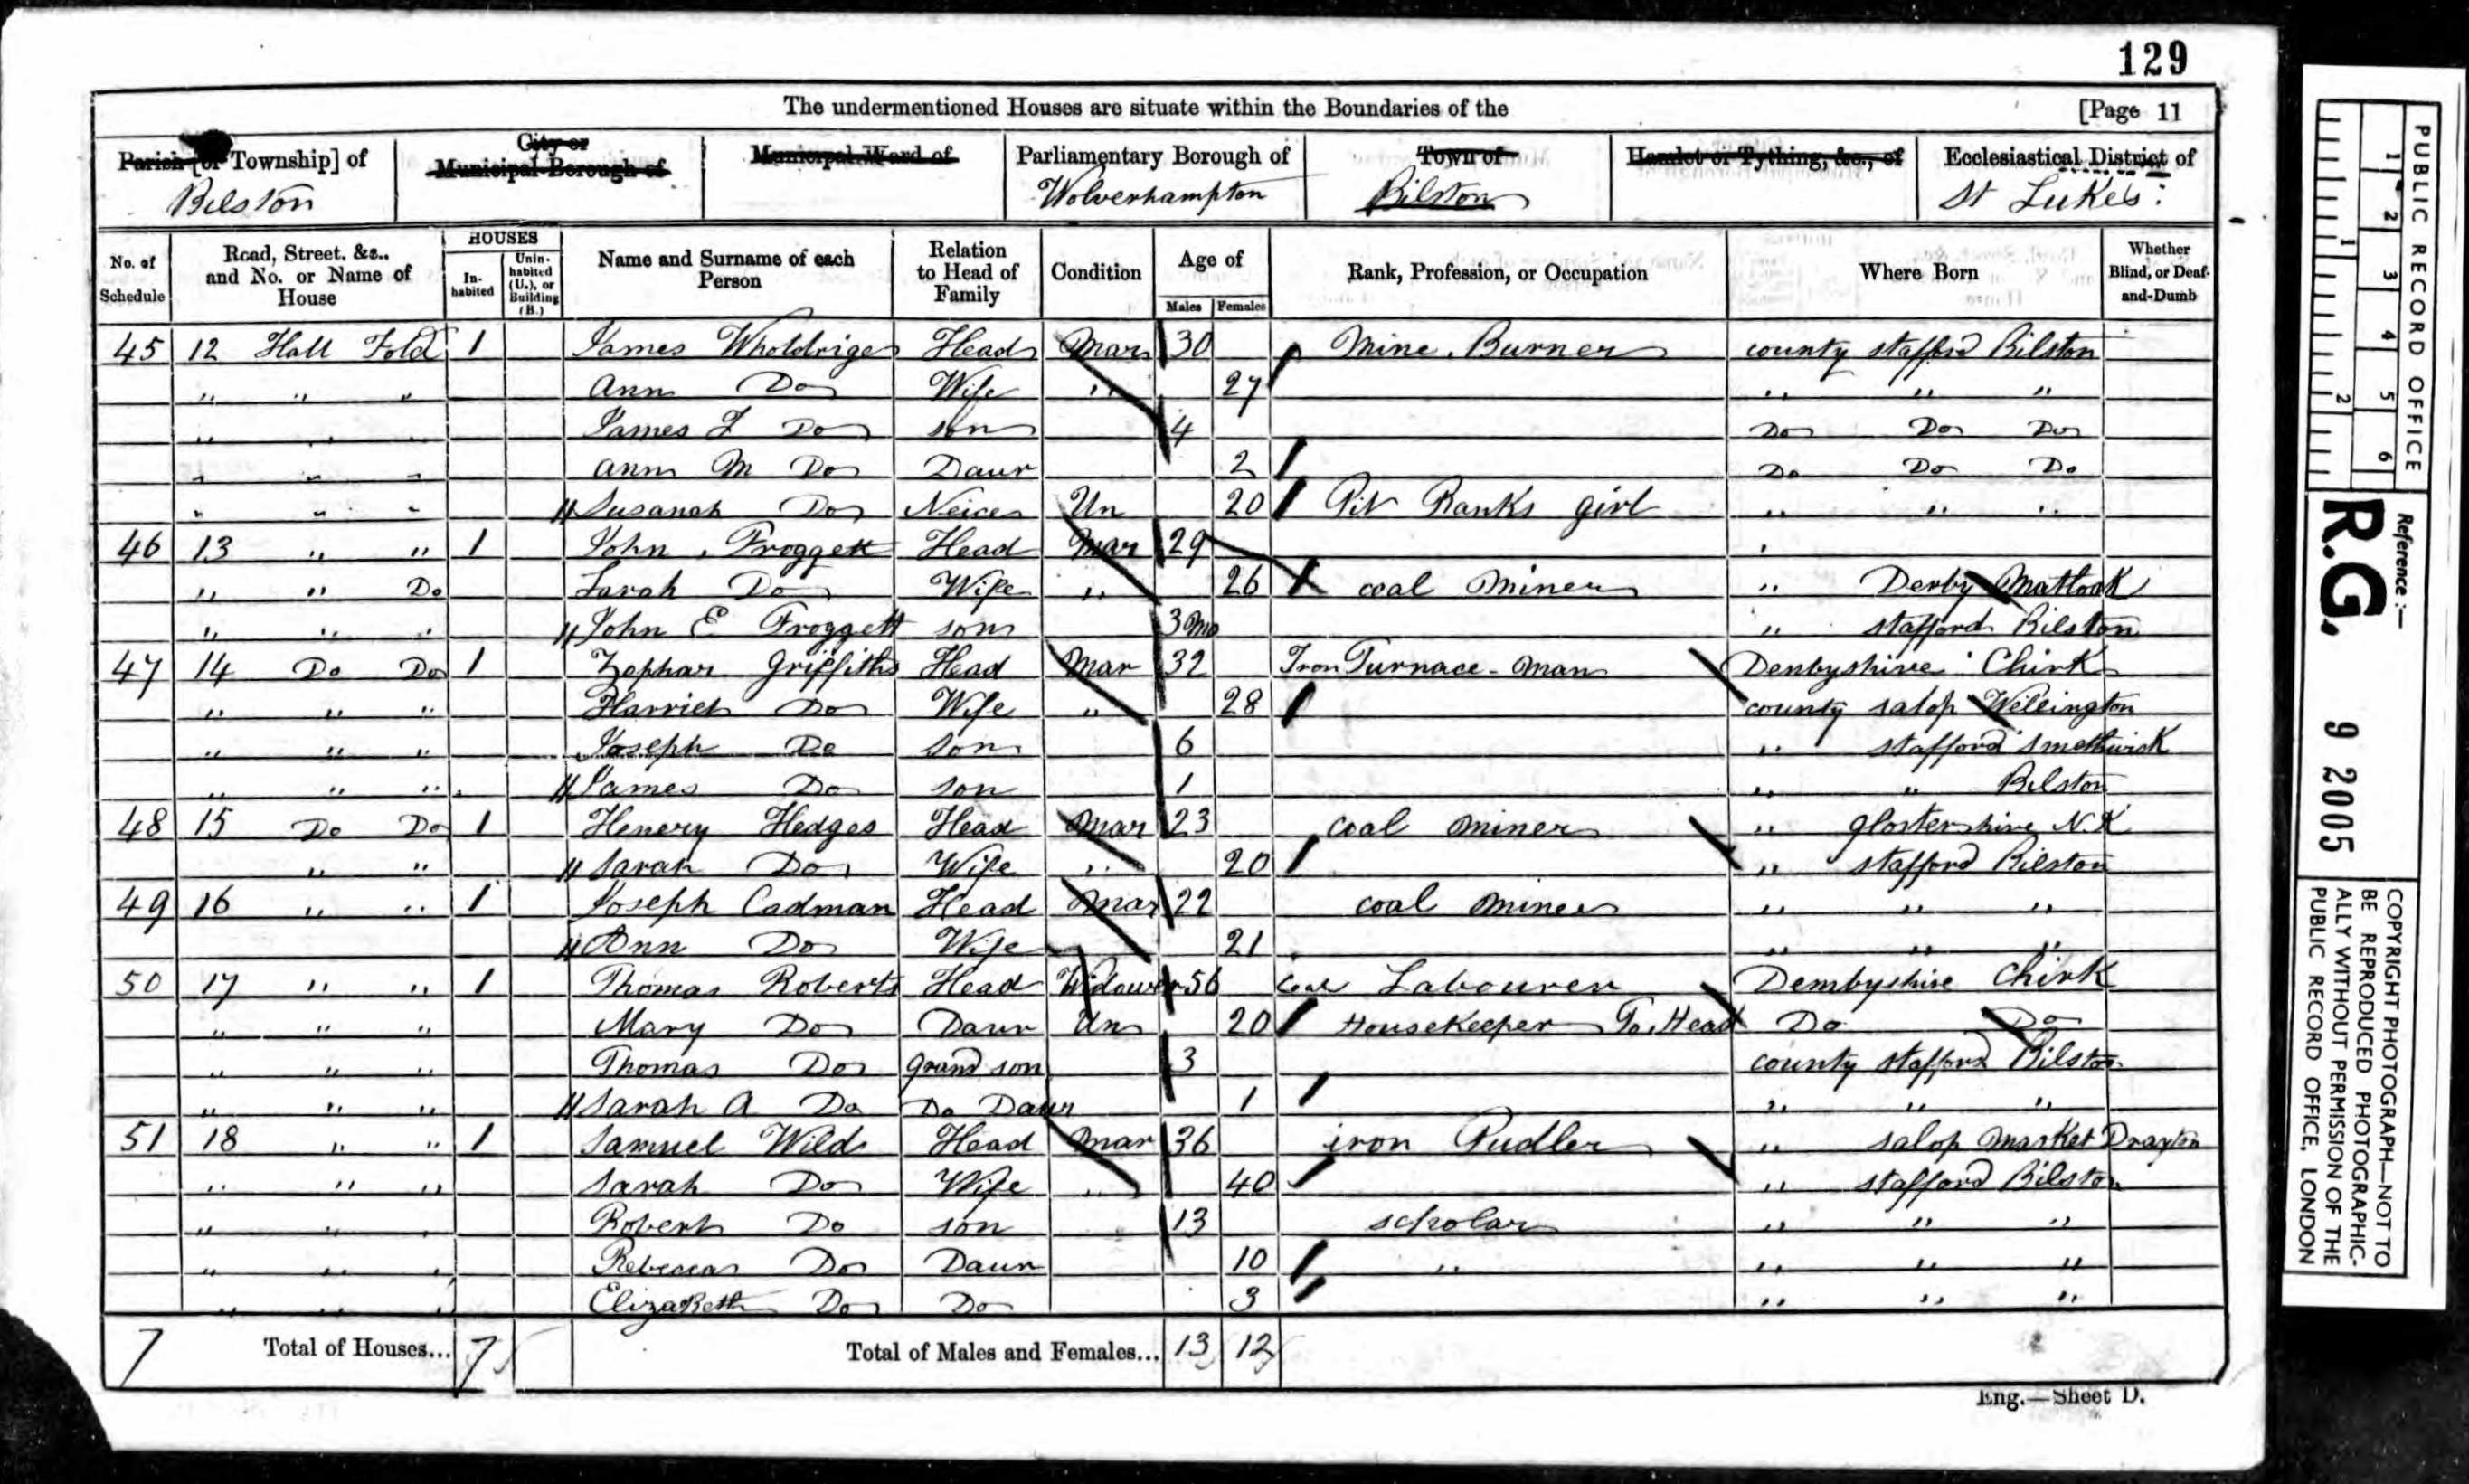 129
The undermentioned Houses are situate within the Boundaries of the [Page 11
Parish [or Township] of City or Municipal Borough of Municipal Ward of Parliamentary Borough of Town of Hamlet or Tything, &c., of Ecclesiastical District of
Bilston Wolverhampton Bilston St Lukes:
No. of Schedule Road, Street, &c., and No. or Name of House HOUSES Inhabited Uninhabited (U.), or Building (B.) Name and Surname of each Person Relation to Head of Family Condition Age of Males Females Rank, Profession, or Occupation Where Born Whether Blind, or Deaf-and-Dumb
45 12 Hall Fold 1 James Wholdrige Head Mar 30 Mine Burner county stafford Bilston
" " " Ann Do Wife " 27 " " "
" " " James Do son 4 Do Do Do
" " " Ann M Do Daur 2 Do Do Do
" " " Susanah Do Neice Un 20 Pit Banks girl " " "
46 13 " " 1 John Froggett Head Mar 29 "
" " Do Sarah Do Wife " 26 coal Miner " Derby Matlock
" " " John E Froggett son 3 Mo " stafford Bilston
47 14 Do Do 1 Zophar Griffiths Head Mar 32 Iron Furnace-man Denbyshire Chirk
" " " Harriet Do Wife " 28 county salop Wellington
" " " Joseph Do son 6 " stafford Smethwick
" " " James Do son 1 " " Bilston
48 15 Do Do 1 Henery Hedges Head Mar 23 coal miner " glostershire N.K
" " Sarah Do Wife " 20 " stafford Bilston
49 16 " " 1 Joseph Cadman Head Mar 22 coal miner " " "
Ann Do Wife 21 " " "
50 17 " " 1 Thomas Roberts Head Widower 56 Labourer Dembyshire Chirk
" " " Mary Do Daur Un 20 Housekeeper To Head Do Do
" " " Thomas Do grand son 3 county stafford Bilston
" " " Sarah A Do Do Daur 1 " " "
51 18 " " 1 Samuel Wild Head Mar 36 iron Pudler " salop Market Drayton
" " " Sarah Do Wife " 40 " stafford Bilston
" " " Robert Do son 13 scholar " " "
" " " Rebecca Do Daur 10 " " " "
" " " Elizabeth Do Do 3 " " "
7 Total of Houses... 7 Total of Males and Females... 13 12
Eng.—Sheet D.
PUBLIC RECORD OFFICE
1 2 3 4 5 6
1 2
Reference:—
R.G. 9 2005
COPYRIGHT PHOTOGRAPH—NOT TO
BE REPRODUCED PHOTOGRAPHIC-
ALLY WITHOUT PERMISSION OF THE
PUBLIC RECORD OFFICE, LONDON